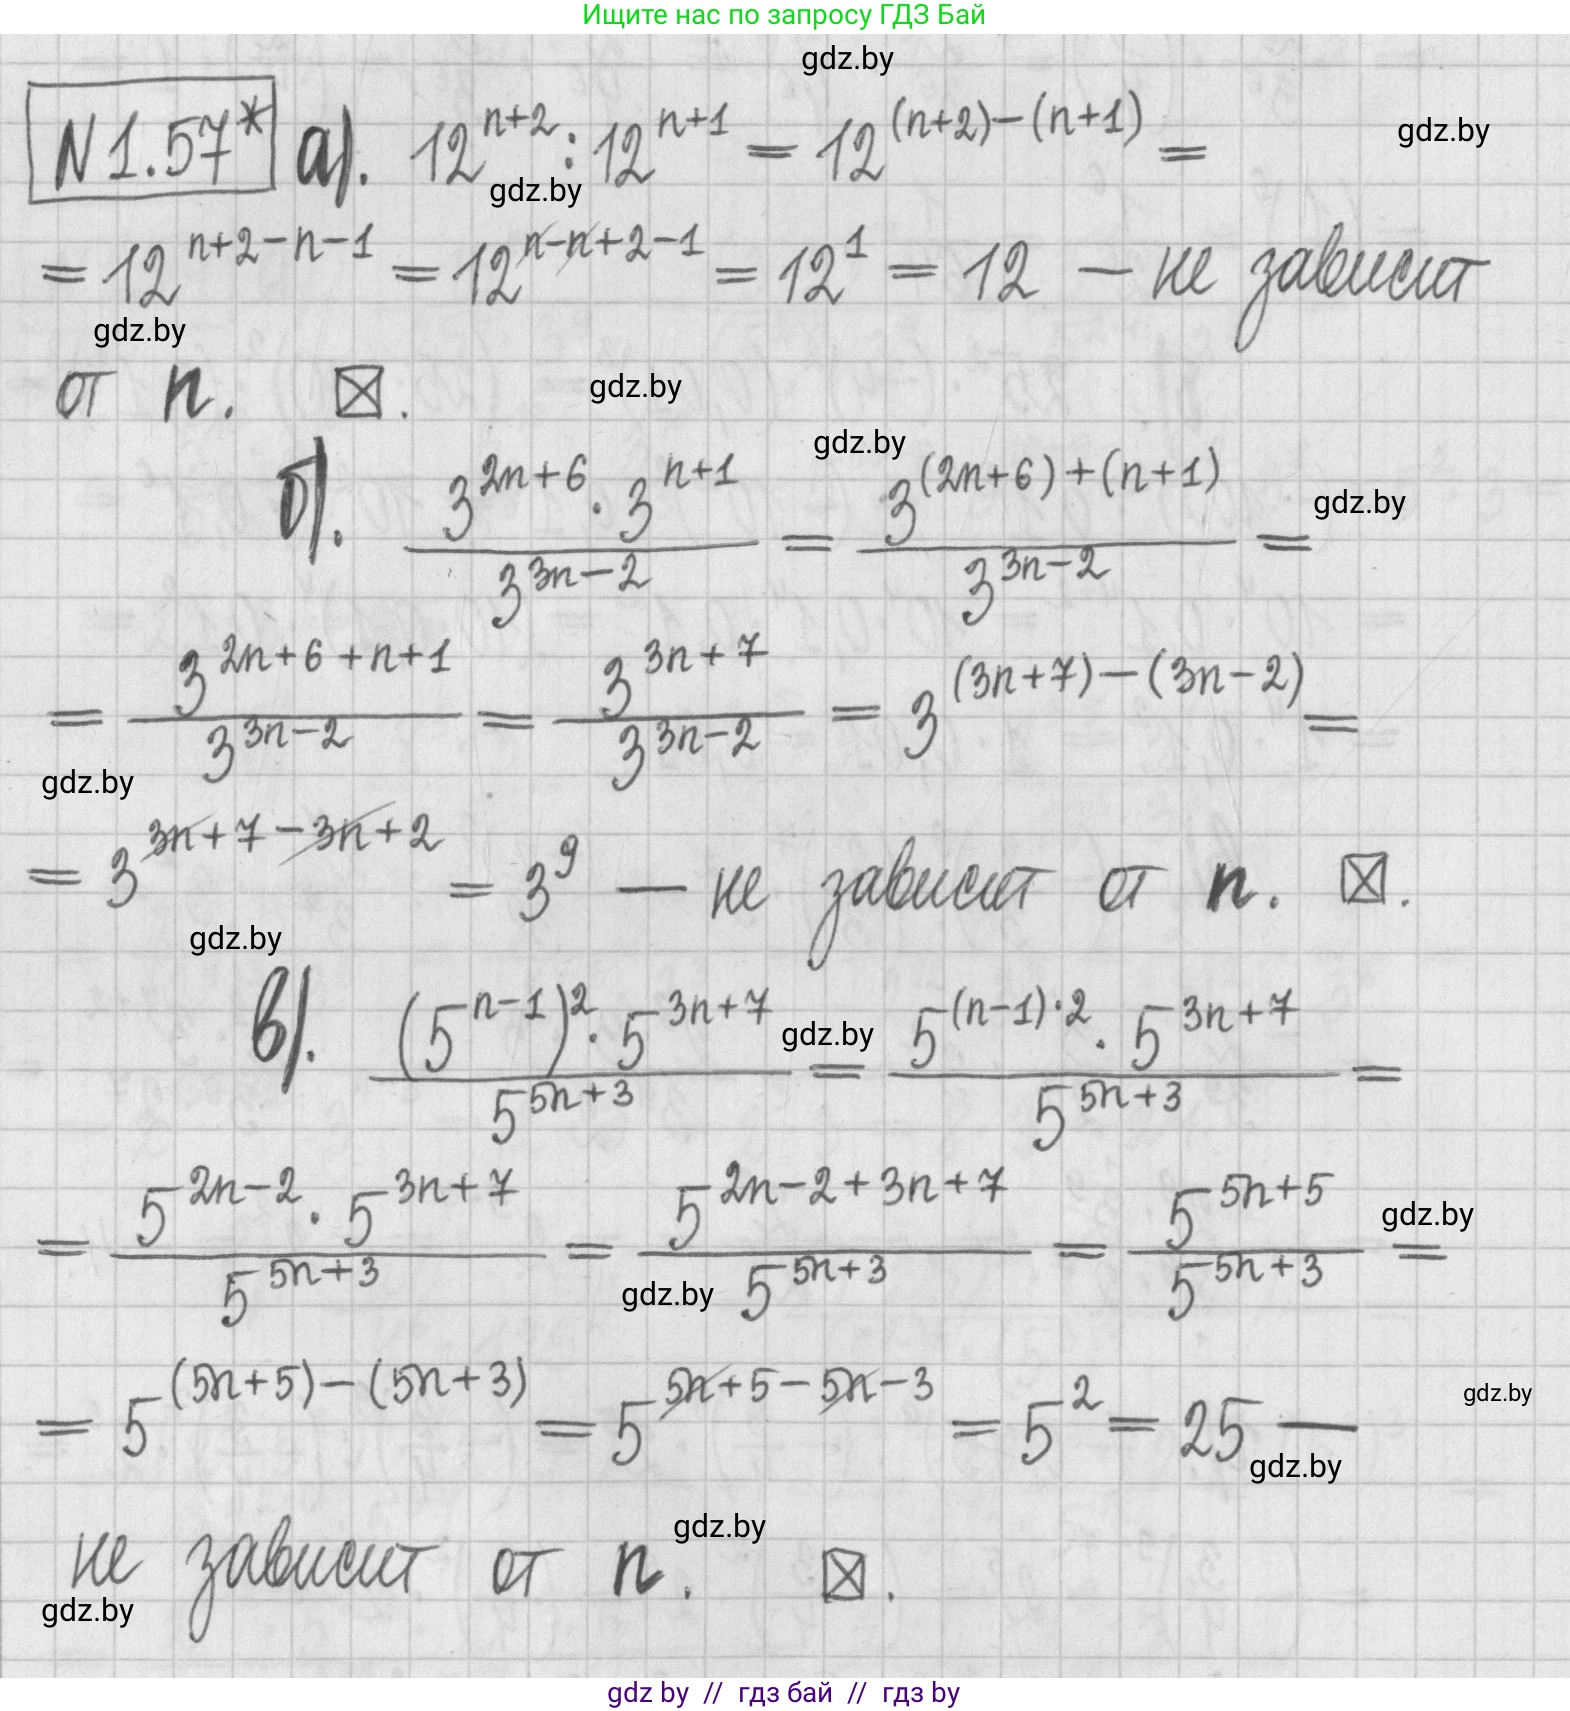 Ищите нас по запросу ГДЗ Бай
gdz.by
N 1.57* а). 12^{n+2} : 12^{n+1} = 12^{(n+2)-(n+1)} =
gdz.by
gdz.by
= 12^{n+2-n-1} = 12^{n-n+2-1} = 12^1 = 12 — не зависит
gdz.by
от n. ☒.
gdz.by
gdz.by
б). \frac{3^{2n+6} · 3^{n+1}}{3^{3n-2}} = \frac{3^{(2n+6)+(n+1)}}{3^{3n-2}} =
gdz.by
= \frac{3^{2n+6+n+1}}{3^{3n-2}} = \frac{3^{3n+7}}{3^{3n-2}} = 3^{(3n+7)-(3n-2)} =
gdz.by
= 3^{3n+7-3n+2} = 3^9 — не зависит от n. ☒.
gdz.by
в). \frac{(5^{n-1})^2 · 5^{3n+7}}{5^{5n+3}} = \frac{5^{(n-1)·2} · 5^{3n+7}}{5^{5n+3}} =
gdz.by
= \frac{5^{2n-2} · 5^{3n+7}}{5^{5n+3}} = \frac{5^{2n-2+3n+7}}{5^{5n+3}} = \frac{5^{5n+5}}{5^{5n+3}} =
gdz.by
gdz.by
= 5^{(5n+5)-(5n+3)} = 5^{5n+5-5n-3} = 5^2 = 25 —
gdz.by
gdz.by
gdz.by
не зависит от n. ☒.
gdz.by
gdz by // гдз бай // гдз by